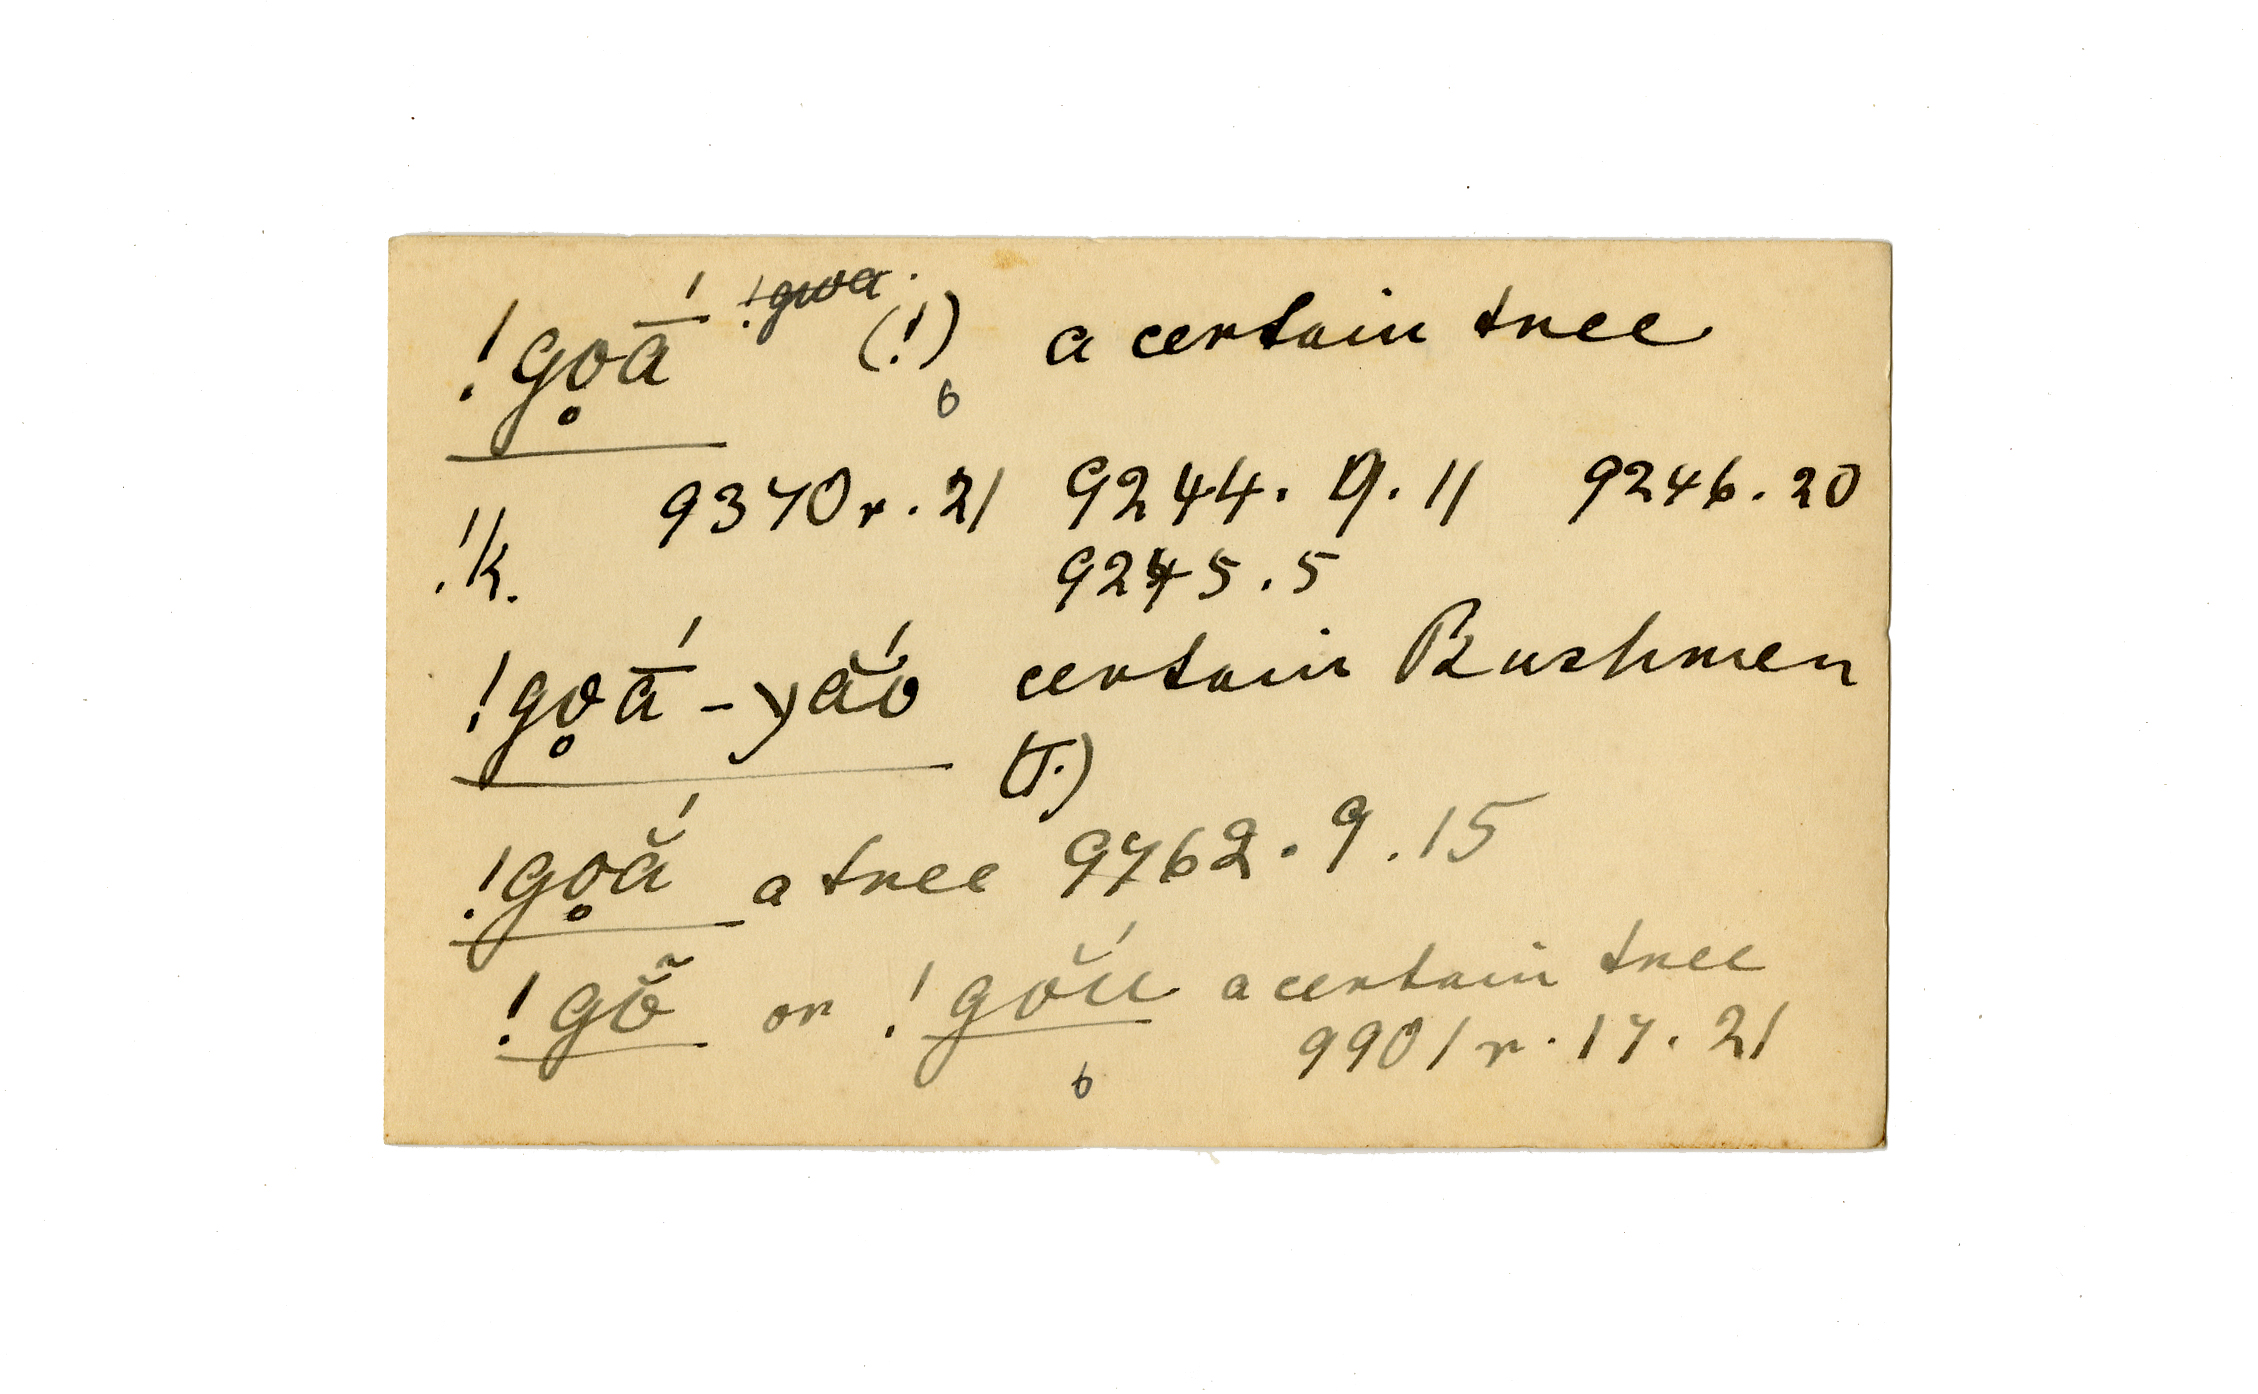 !gọā́ !gwa. (!) a certain tree
6
9370r.21 9244.9.11 9246.20
!k. 9245.5
!gọā́ - yắŏ certain Bushmen
(T.)
!gọắ a tree 9762.9.15
!gõ̆ or !gŏ́ŭ a certain tree
6 9901r.17.21